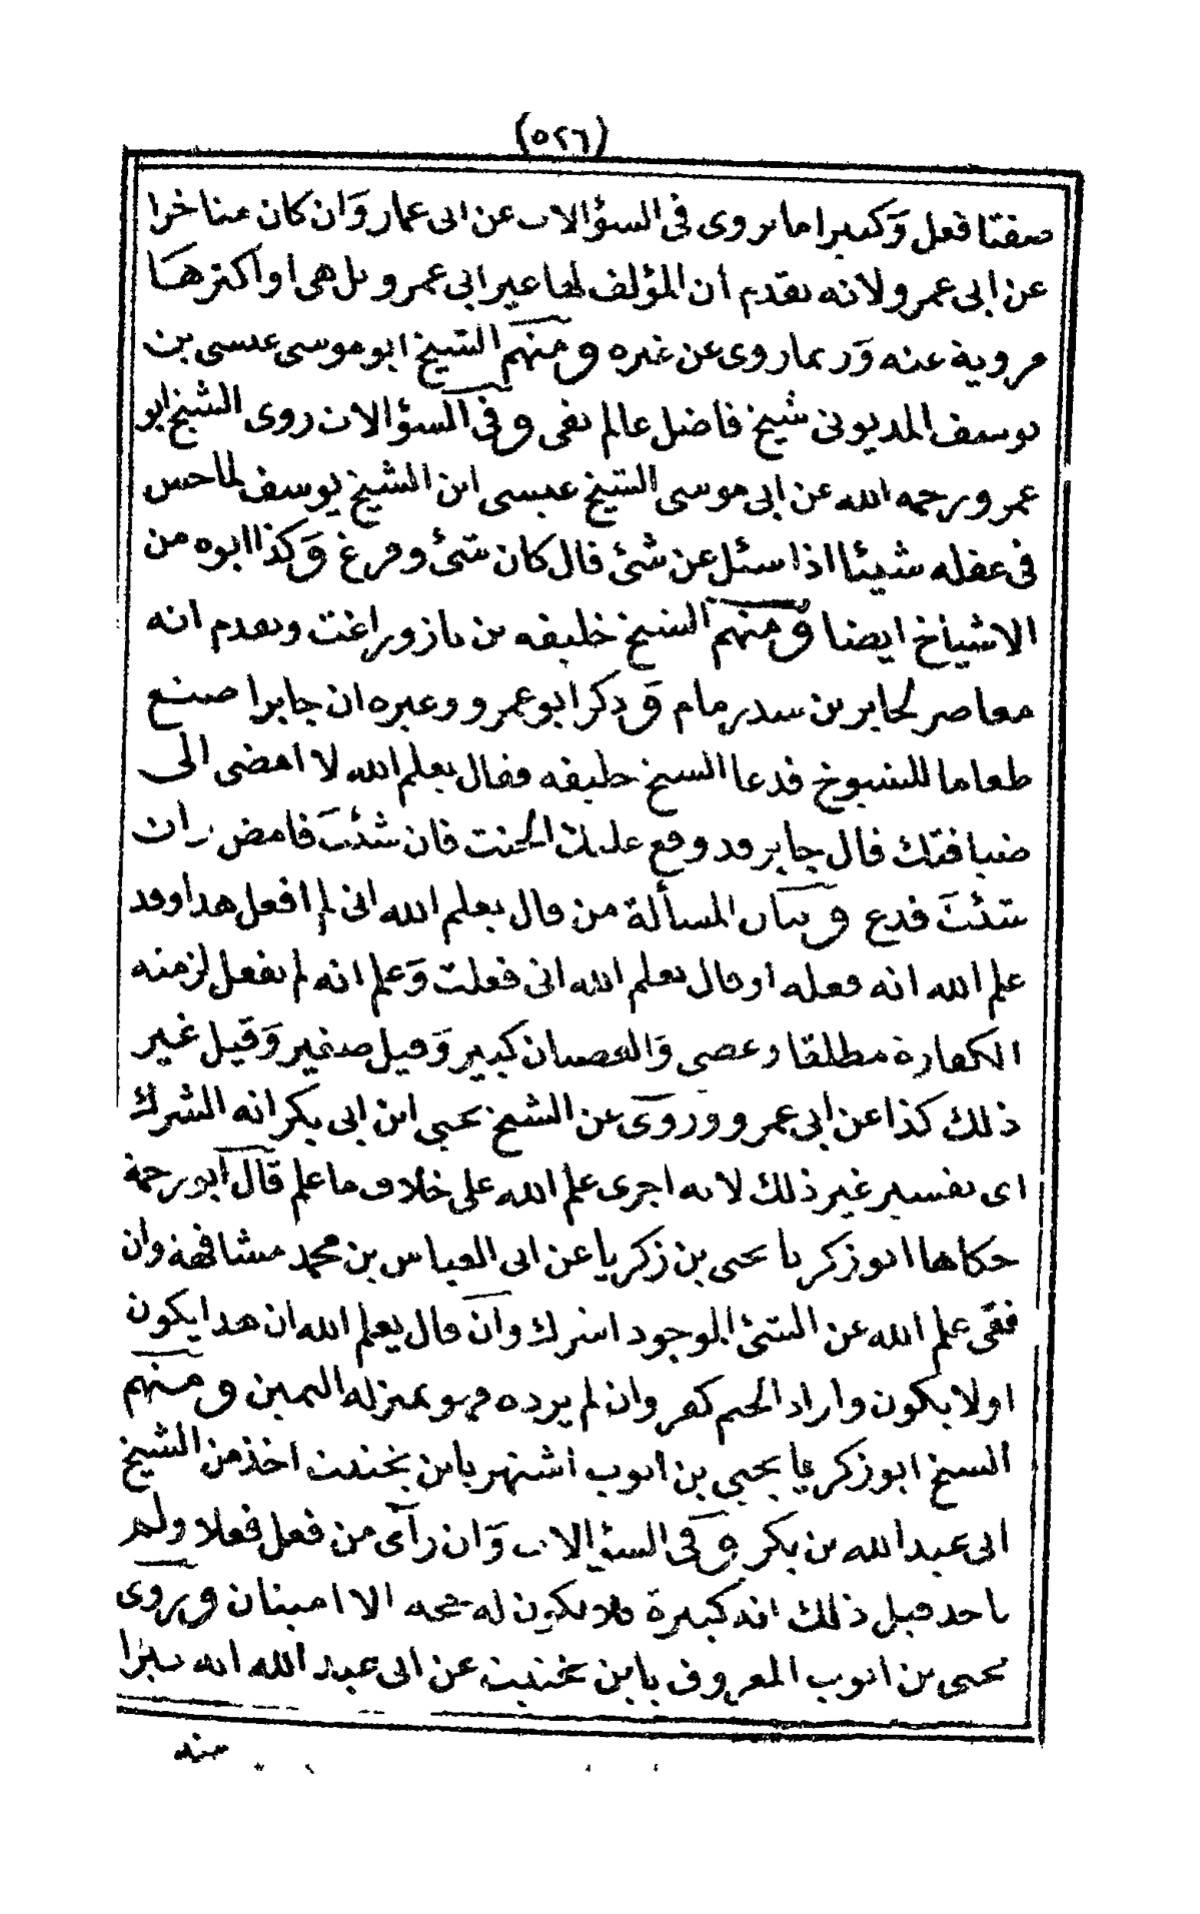 (٥٢٦)
صفتا فعل وكثيرا ما يروى فى السؤالات عن ابى عمار وان كان متاخرا
عن ابى عمرو ولانه تقدم أن المؤلف لها غير ابى عمرو بل هى او اكثرها
مروية عنه وربما روى عن غيره ومنهم الشيخ ابو موسى عيسى بن
يوسف المديونى شيخ فاضل عالم تقى وفى السؤالات روى الشيخ ابو
عمرو رحمه الله عن ابى موسى الشيخ عيسى ابن الشيخ يوسف
فى عقله شيئا اذا سئل عن شئ قال كان شئ وفرغ وكذا ابوه من
الاشياخ ايضا ومنهم الشيخ خليفه بن تازوراغت وتقدم انه
معاصر لجابر بن سدرمام وذكر ابو عمرو وغيره ان جابرا صنع
طعاما للشيوخ فدعا الشيخ خليفه فقال يعلم الله لا امضى الى
ضيافتك قال جابر قد وقع عليك الحنت فان شئت فامض وان
شئت فدع وبيان المسألة من قال يعلم الله انى لم افعل هذا وقد
علم الله انه فعله او قال يعلم الله انى فعلت وعلم انه لم يفعل لزمته
الكفارة مطلقا وعصى والعصيان كبير وقيل صغير وقيل غير
ذلك كذا عن ابى عمرو وروى عن الشيخ يحيى ابن ابى بكر انه اشرك
اى بفسير غير ذلك لانه اجرى علم الله على خلاف ما علم قال ابو رحمة
حكاها ابو زكريا يحيى بن زكريا عن ابى العباس بن محمد مشافهة وان
نفى علم الله عن الشئ الموجود اشرك وان قال يعلم الله ان هذا يكون
اولا يكون واراد الحتم كفر وان لم يرده فهو بمنزله اليمين ومنهم
الشيخ ابو زكريا يحيى بن ايوب اشتهر بابن يخنيت اخذ من الشيخ
ابى عبد الله بن بكر وفى السؤالات وان رآى من فعل فعلا ولم
ياخذ قبل ذلك انه كبيرة فلا يكون له حجه الا امينان ويروى
يحيى بن ايوب المعروف بابن يخنيت عن ابى عبد الله انه يبرا
منه